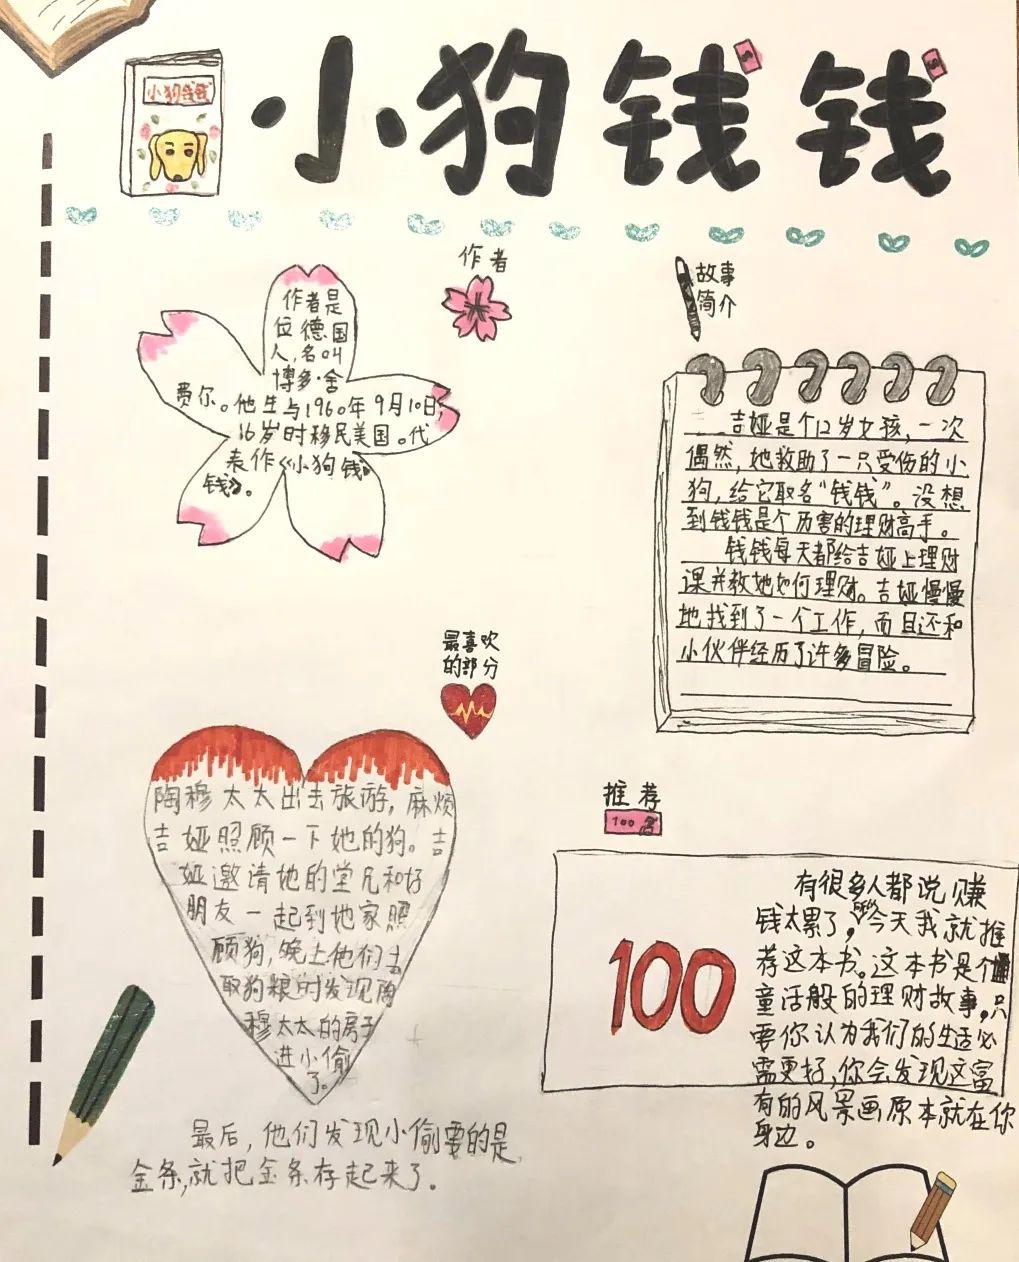 小狗钱钱
小狗钱钱
作者
作者是
位德国
人,名叫
博多·舍
费尔。他生与1960年9月10日;
16岁时移民美国。代
表作《小狗钱
钱》。
故事
简介
吉娅是个12岁女孩,一次
偶然,她救助了一只受伤的小
狗,给它取名“钱钱”。没想
到钱钱是个厉害的理财高手。
钱钱每天都给吉娅上理财
课并教她如何理财。吉娅慢慢
地找到了一个工作,而且还和
小伙伴经历了许多冒险。
最喜欢
的部分
陶穆太太出去旅游,麻烦
吉娅照顾一下她的狗。吉
娅邀请她的堂兄和好
朋友一起到她家照
顾狗,晚上他们去
取狗粮时发现陶
穆太太的房子
进小偷
了。
最后,他们发现小偷要的是
金条,就把金条存起来了。
推荐
100
100
有很多人都说赚
钱太累了,今天我就推
荐这本书。这本书是个
童话般的理财故事,只
要你认为我们的生活必
需更好,你会发现这富
有的风景画原本就在你
身边。